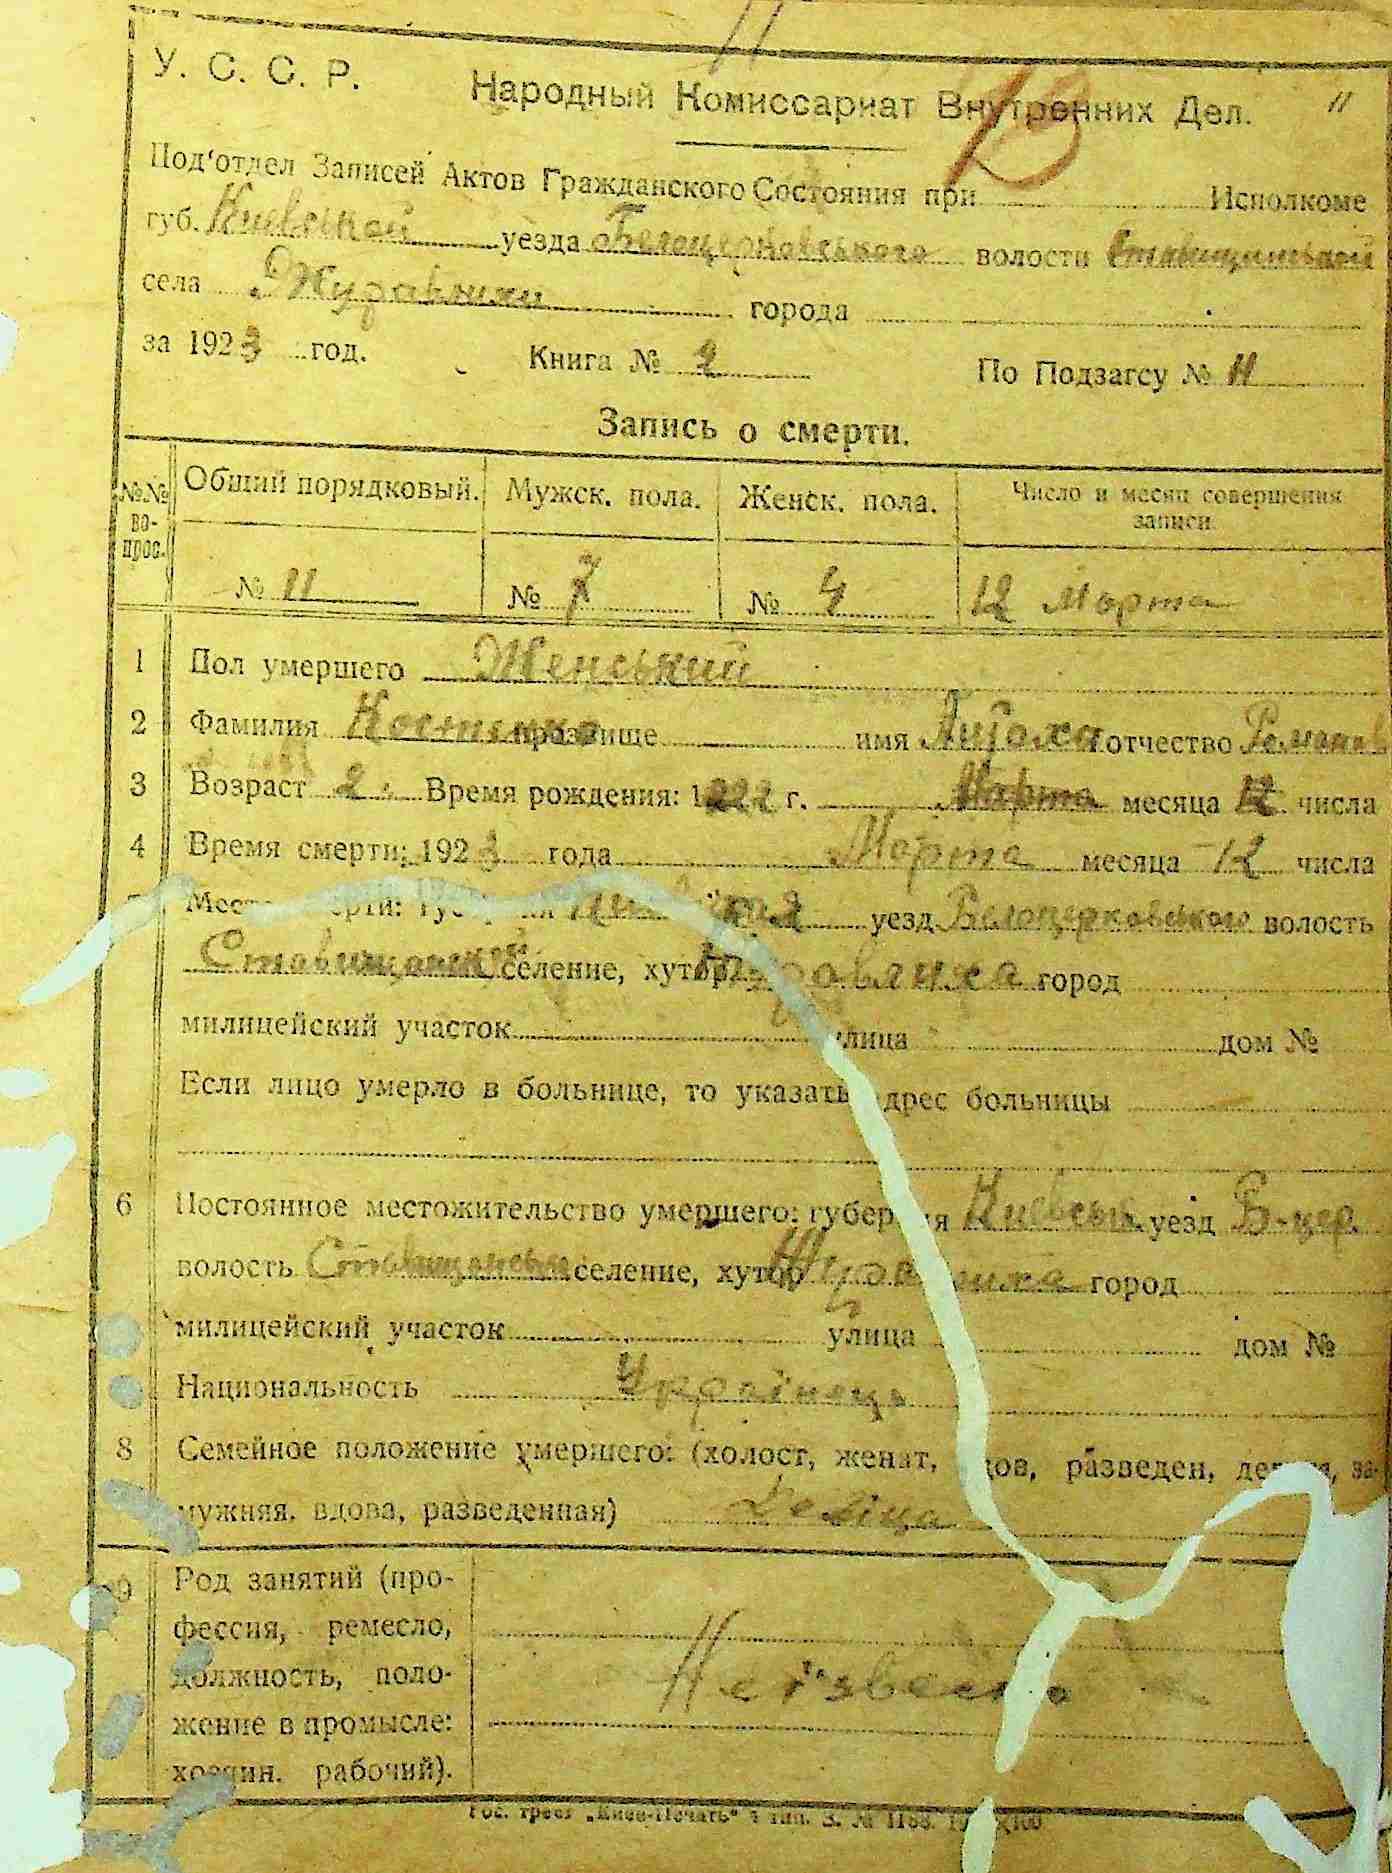 11
У. С. С. Р. Народный Комиссариат Внутренних Дел. 11
13
Под'отдел Записей Актов Гражданского Состояния при Исполкоме
губ. Киевской уезда Белоцерковського волости Ставищанской
села Журавлихи города
за 1923 год. Книга № 2 По Подзагсу № 11
Запись о смерти.
№№ во-прос. Общий порядковый. Мужск. пола. Женск. пола. Число и месяц совершения записи
№ 11 № 7 № 4 12 Марта
1 Пол умершего Женський
2 Фамилия прозвище имя отчество Романов
3 Возраст 2 Время рождения: 1922 г. Марта месяца 12 числа
4 Время смерти: 1923 года Марта месяца 12 числа
Место смерти: Губерния уезд Белоцерковського волость
Ставищанской селение, хутор Журавлиха город
милицейский участок улица дом №
Если лицо умерло в больнице, то указать адрес больницы
6 Постоянное местожительство умершего: губерния Киевськ. уезд Б-цер.
волость Ставищанськ селение, хутор Журавлиха город
милицейский участок улица дом №
Национальность Українець
8 Семейное положение умершего: (холост, женат, вдов, разведен, девица, за-
мужняя, вдова, разведенная) Девіца
9 Род занятий (про-
фессия, ремесло,
должность, поло-
жение в промысле:
хозяин, рабочий).
Неізвесно
Гос. трест „Киев-Печать" 4 тип. З. № 1188.